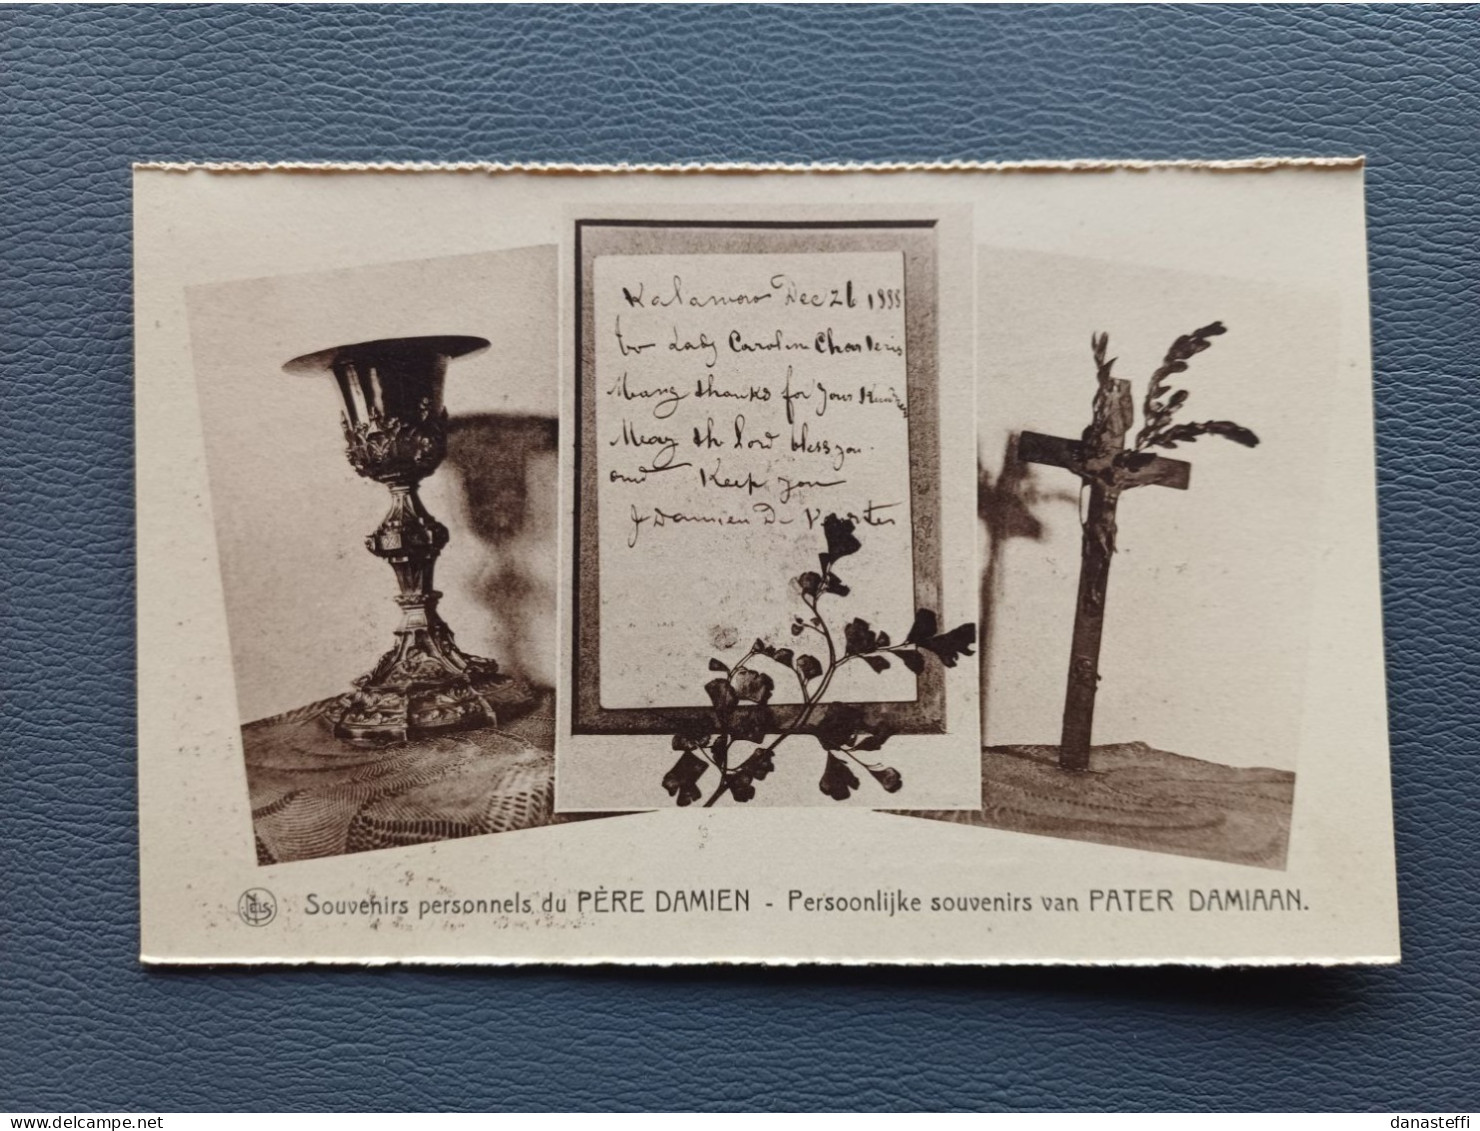 Kalawao Dec 26 1888
to Lady Caroline Charteris
Many thanks for your kindness
May the Lord bless you
and Keep you
J Damien De Veuster
NELS
Souvenirs personnels du PÈRE DAMIEN - Persoonlijke souvenirs van PATER DAMIAAN.
delcampe.net
danasteffi